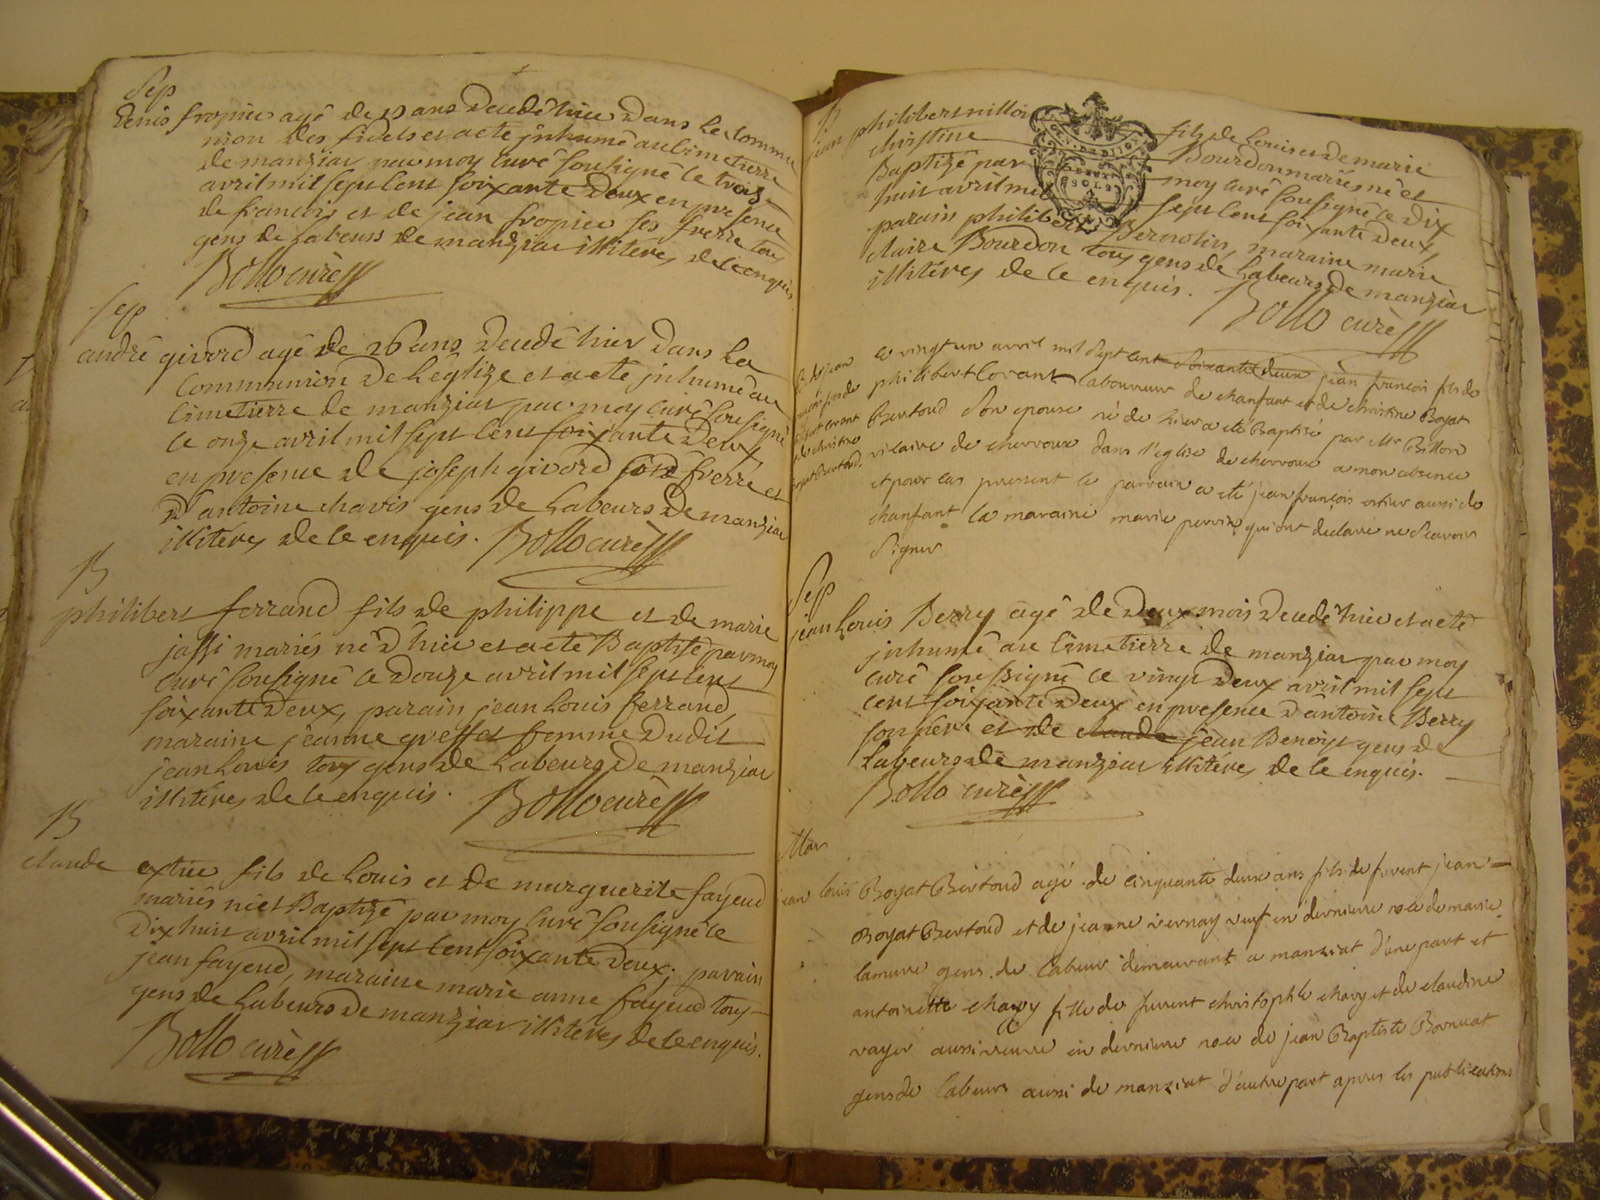 Sep
denis fropier agé de 19 ans decedé hier dans la commu
nion des fideles et a eté inhumé au cimetierre
de manziat par moy curé sousigné le trois
avril mil sept cent soixante deux en presence
de francois et de jean fropier ses frerre tous
gens de labeurs de manziat illiteres de ce enquis
Bollo curé
Sep
andré givord agé de 26 ans decedé hier dans la
communion de l'eglize et a eté inhumé au
cimetierre de manziat par moy curé sousigné
le onze avril mil sept cent soixante deux
en presence de joseph givord son frerre et
d'antoine chavis gens de labeurs de manziat
illiteres de ce enquis. Bollo curé
B
philibert ferrand fils de philippe et de marie
jassi mariés né d'hier et a eté Baptisé par moy
curé sousigné le douze avril mil sept cent
soixante deux, parain jean Louis ferrand,
maraine jeanne greffet femme dudit
jean Louis tous gens de labeurs de manziat
illiteres de ce enquis. Bollo curé
B
claude extier fils de Louis et de marguerite fayeud
mariés né et Baptizé par moy curé sousigné le
dix huit avril mil sept cent soixante deux; parain
jean fayeud, maraine marie anne fayeud tous
gens de labeurs de manziat illiteres de ce enquis.
Bollo curé
B
jean philibert fils de Louis et de marie
christine Bourdon mariés né et
Baptizé par moy curé sousigné le dix
huit avril mil sept cent soixante deux,
parain philibert Bernolin, maraine marie
claire Bourdon tous gens de labeurs de manziat
illiteres de ce enquis. Bollo curé
le vingt un avril mil sept cent soixante deux jean francois fils de
philibert Corant laboureur de chanfant et de christine Boyat
Bertoud son epouse né de hier a eté Baptisé par Mr Billon
vicaire de chevroux dans l'eglise de chevroux a mon absence
et pour cas pressent le parrain a eté jean françois extier aussi de
chanfant la maraine marie perrin qui ont declaré ne scavoir
signer
Sep
jean Louis Berry agé de deux mois decedé hier et a eté
inhumé au cimetierre de manziat par moy
curé soussigné le vingt deux avril mil sept
cent soixante deux en presence d'antoine Berry
son pere et de claude jean Benoist gens de
labeurs de manziat illiteres de ce enquis.
Bollo curé
Mar
jean louis Boyat Bertoud agé de cinquante deux ans fils de furent jean
Boyat Bertoud et de jeanne vernay veuf en derniere noce de marie
lamure gens de labeur demeurant a manziat d'une part et
antoinette chavy fille de furent christophle chavy et de claudine
rayer aussi veuve en derniere noce de jean Baptiste Bornuat
gens de labeurs aussi de manziat d'autre part apres les publications